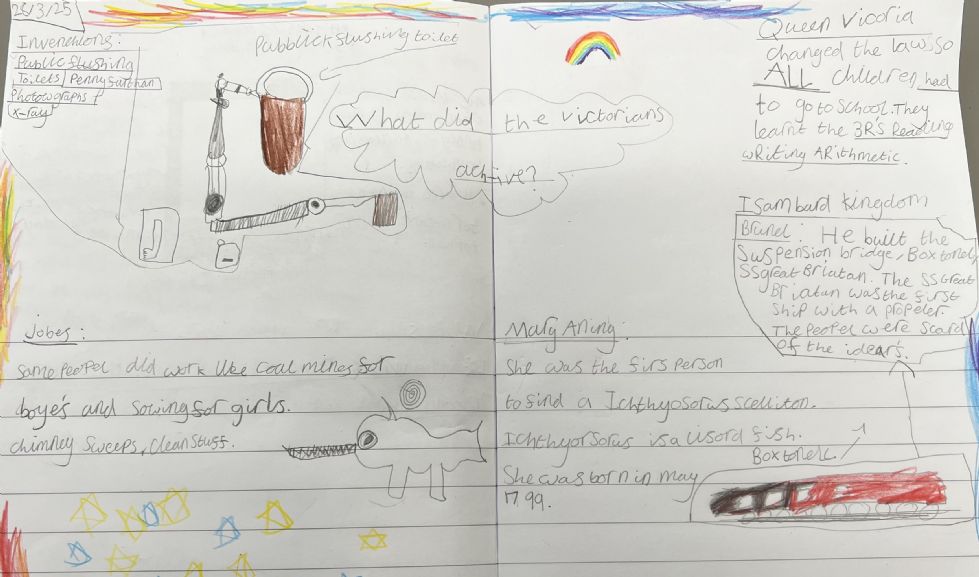 28/3/25
Invenchions:
Public slushing
Toilets Penny farthan
Photographs +
x-ray
Pubblick slushing toilet
What did the victorians
achive?
Queen Vicoria
changed the law so
ALL children had
to go to school. They
learnt the 3R's Reading
wRiting ARithmetic.
Isambard kingdom
Brunel: He built the
Suspension bridge, Box tonell,
SSgreat Briatan. The SSGreat
Briatan was the first
ship with a propeler.
The Peopel were scard
of the idear's.
Jobes:
Some Peopel did work like coal mines for
boye's and sowing for girls.
chimney sweeps, clean stuff.
Mary Aning:
She was the firs person
to find a Ichthyosorus scelliton.
Ichthyorsorus is a lisord fish.
She was born in may
1799.
Box tonell